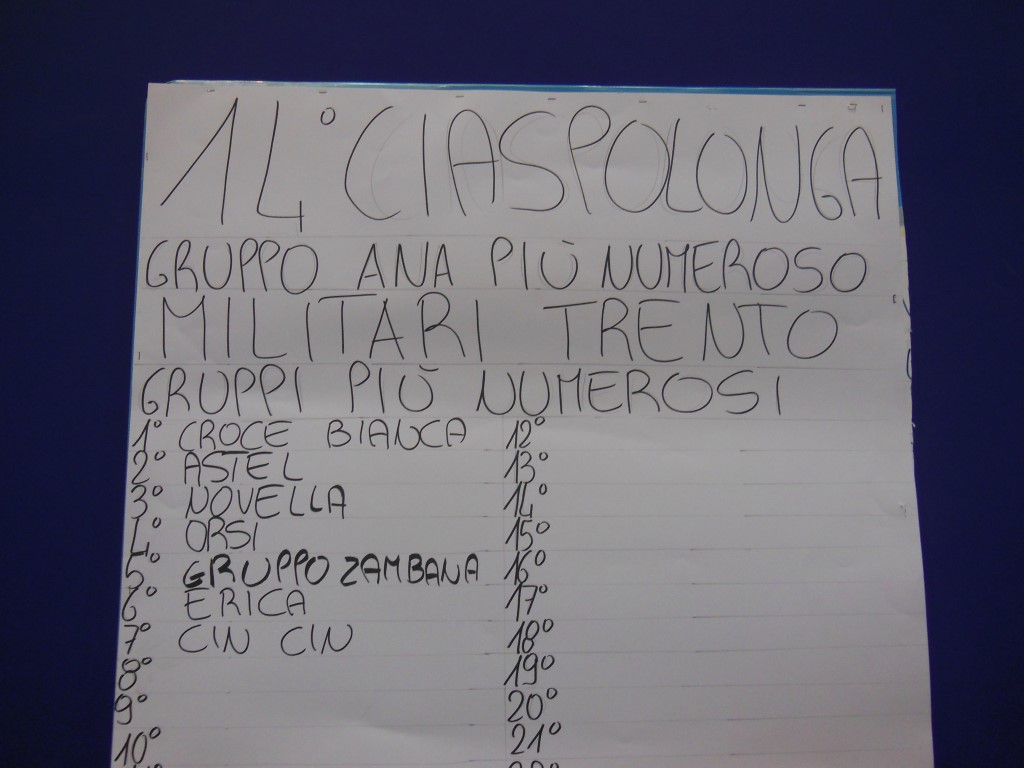 14° CIASPOLONGA
GRUPPO ANA PIÙ NUMEROSO
MILITARI TRENTO
GRUPPI PIÙ NUMEROSI
1° CROCE BIANCA
2° ASTEL
3° NOVELLA
4° ORSI
5° GRUPPO ZAMBANA
6° ERICA
7° CIN CIN
8°
9°
10°
12°
13°
14°
15°
16°
17°
18°
19°
20°
21°